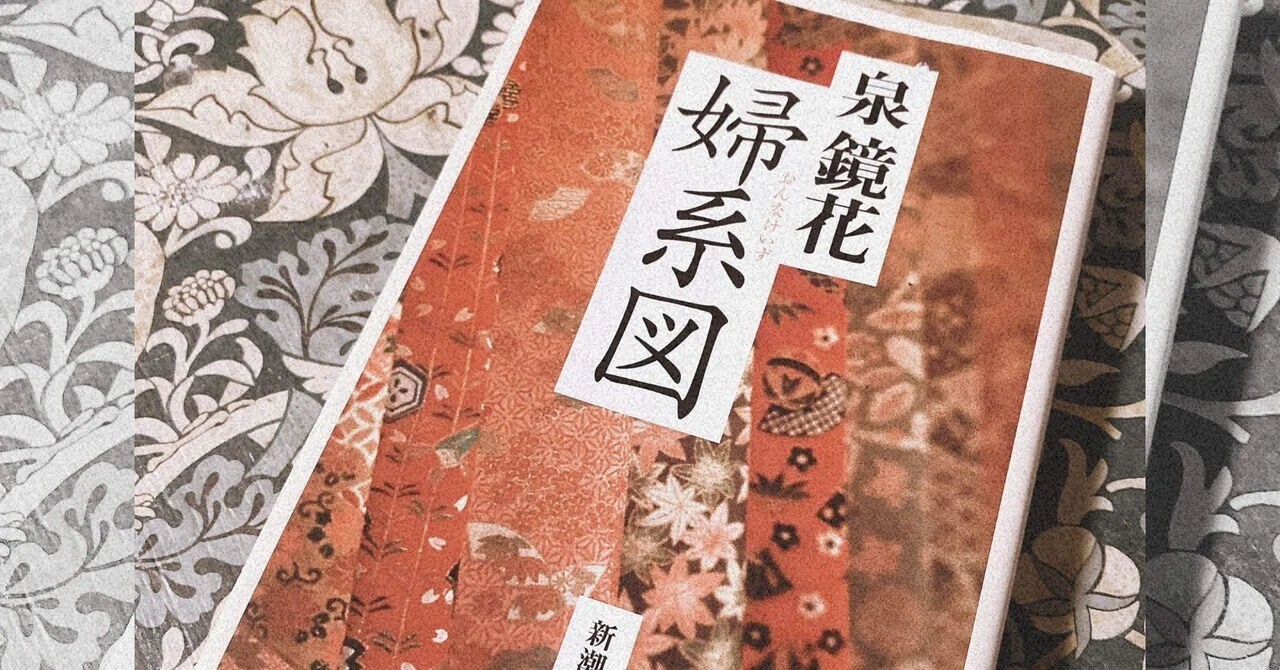 泉鏡花
婦系図
おんなけいず
新潮